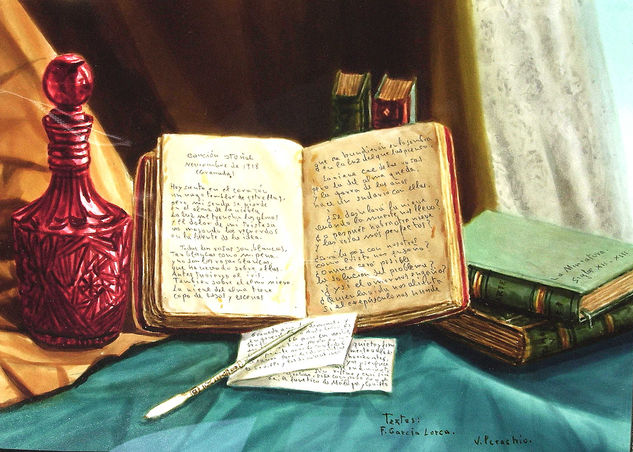 CANCIÓN OTOÑAL
Noviembre de 1918
(Granada)
Hoy siento en el corazón
un vago temblor de estrellas,
pero mi senda se pierde
en el alma de la niebla.
La luz me troncha las alas
y el dolor de mi tristeza
va mojando los recuerdos
en la fuente de la idea.
Todas las rosas son blancas,
tan blancas como mi pena,
y no son las rosas blancas,
que ha nevado sobre ellas.
Antes tuvieron el iris.
También sobre el alma nieva.
La nieve del alma tiene
copos de besos y escenas
que se hundieron en la sombra
o en la luz del que las piensa.
La nieve cae de las rosas
pero la del alma queda,
y la garra de los años
hace un sudario con ellas.
¿Se deshelará la nieve
cuando la muerte nos lleva?
¿O después habrá otra nieve
y otras rosas más perfectas?
¿Será la paz con nosotros
como Cristo nos enseña?
¿O nunca será posible
la solución del problema?
¿Y si el amor nos engaña?
¿Quién la vida nos alienta
si el crepúsculo nos hunde
La Narrativa
siglo XII-XIII
Textos:
F. García Lorca.
V. Perachio.